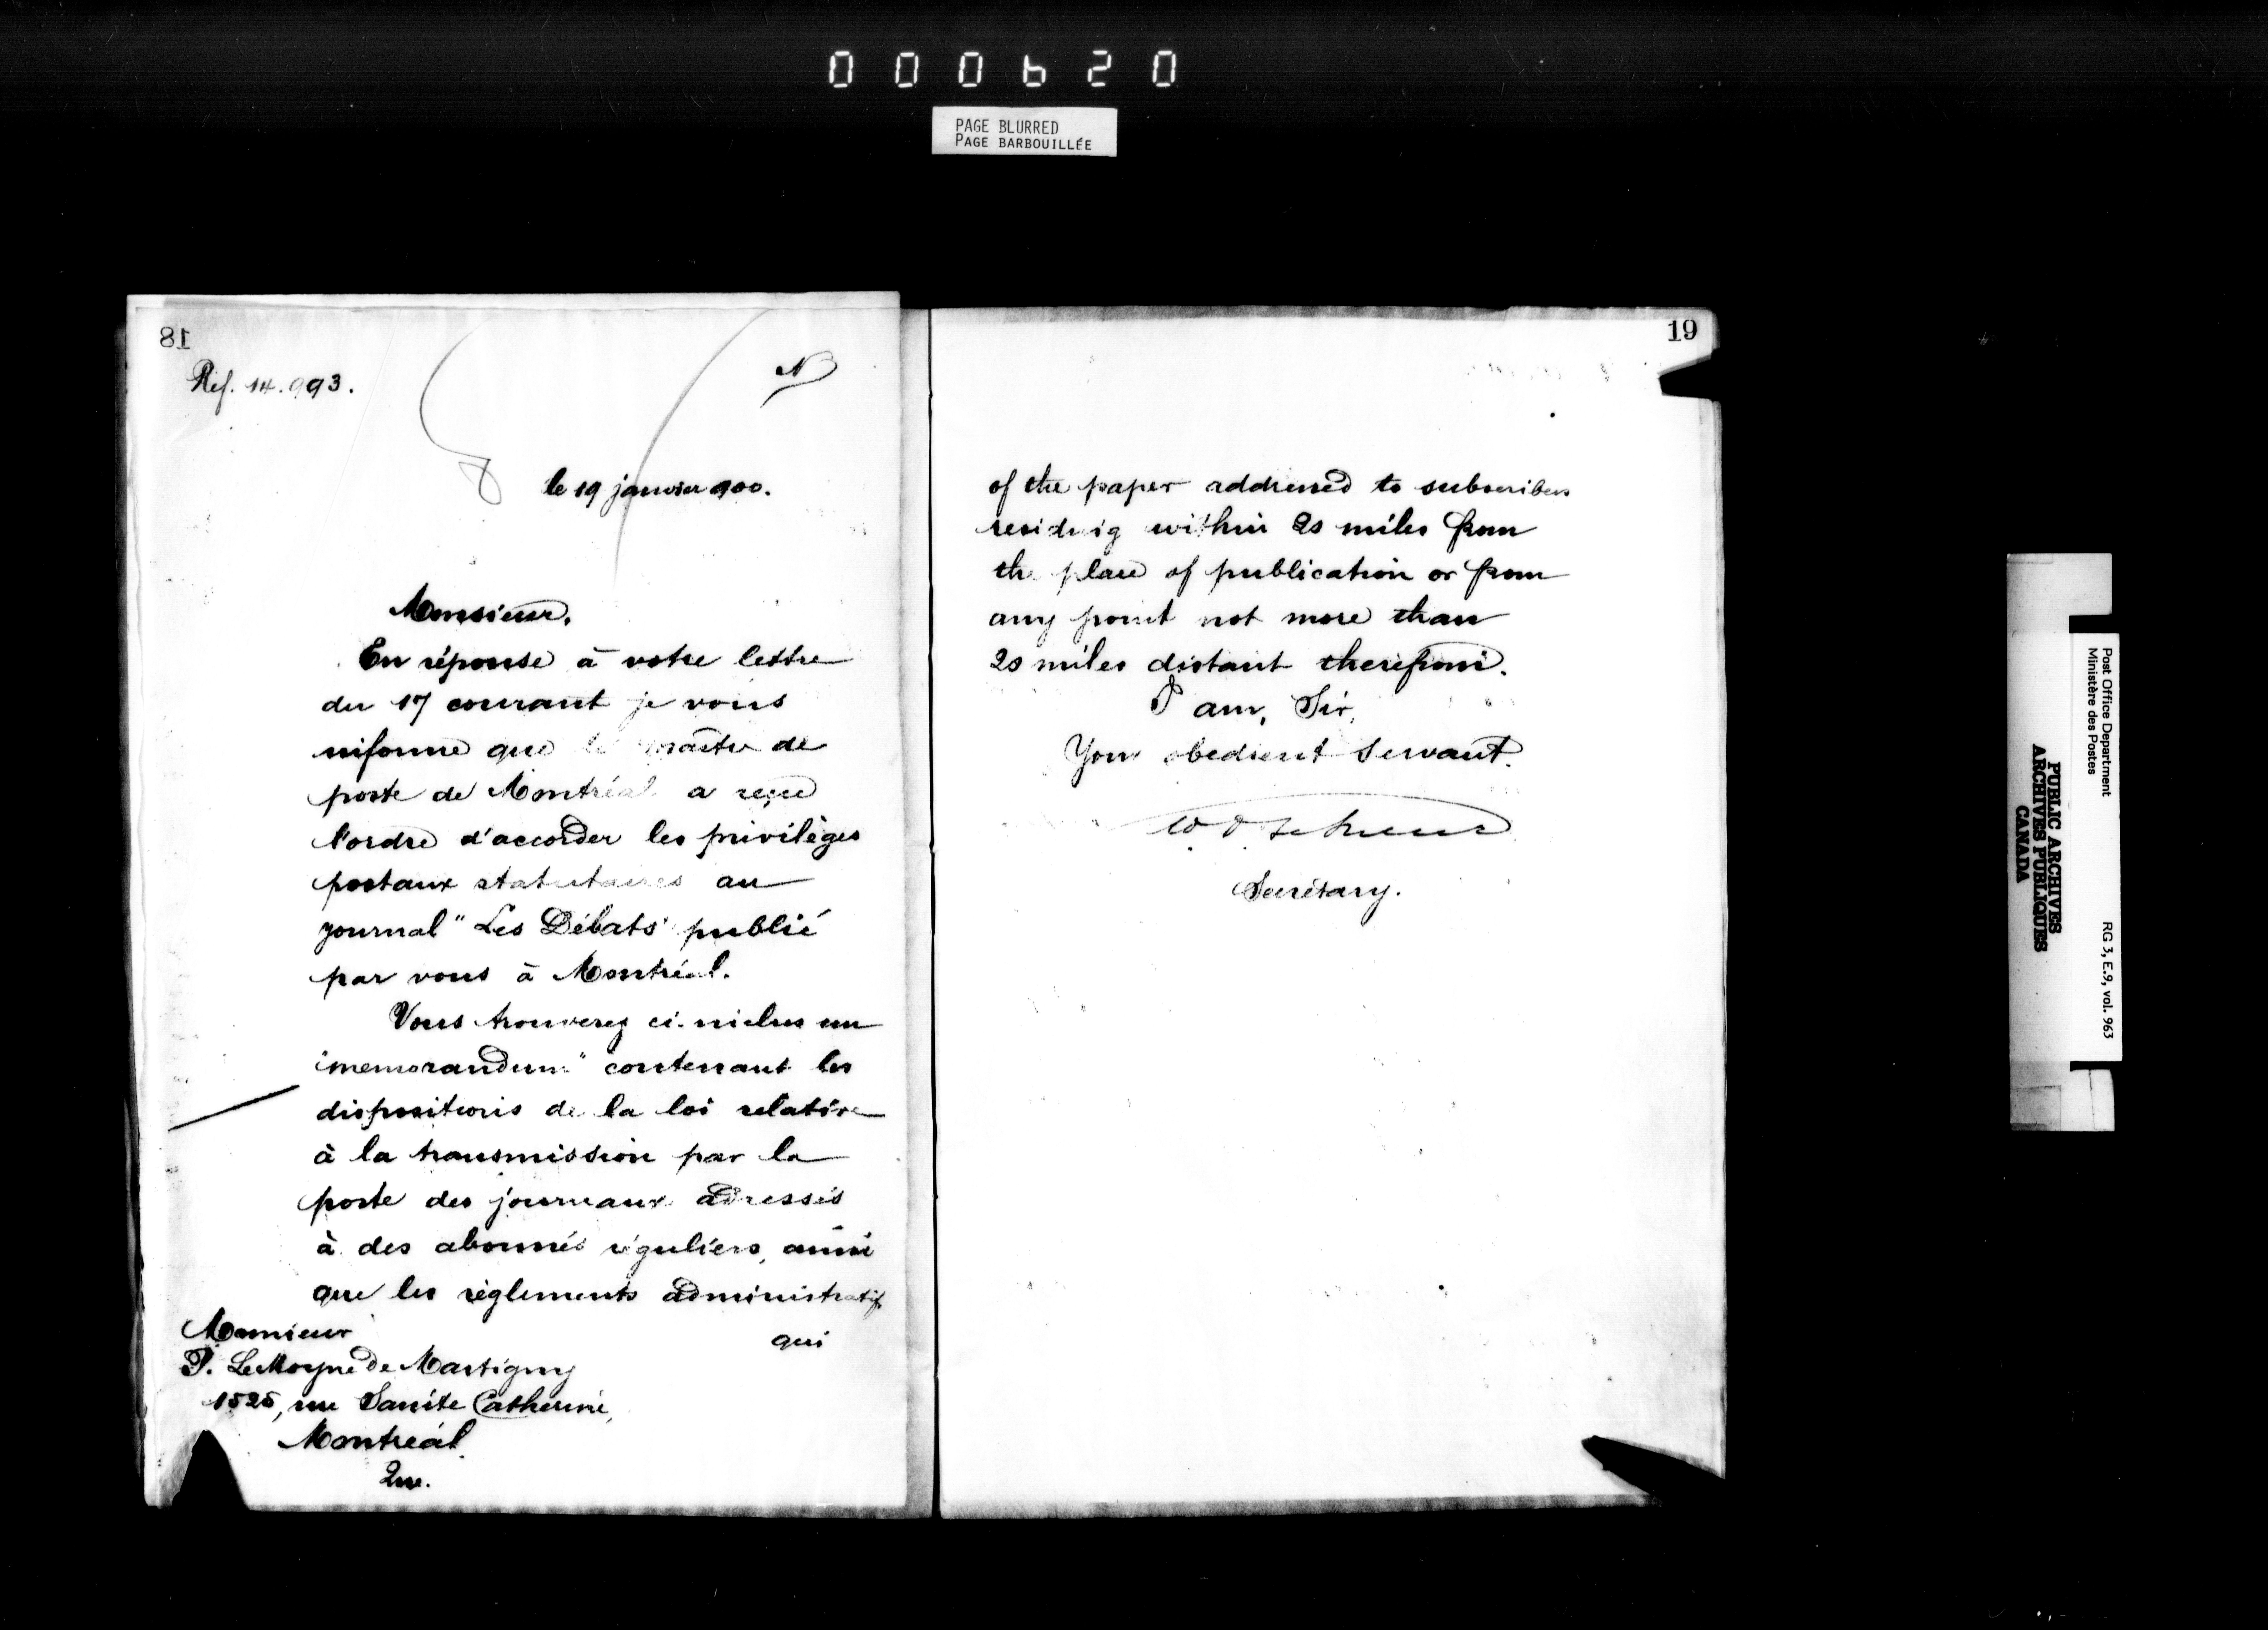 000620
PAGE BLURRED
PAGE BARBOUILLÉE
18
Ref. 14.993.
le 19 janvier 900.
Monsieur,
En réponse à votre lettre
du 17 courant je vous
informe que le maître de
poste de Montréal a reçu
l'ordre d'accorder les privilèges
postaux statutaires au
journal "Les Débats" publié
par vous à Montréal.
Vous trouverez ci-inclus un
"memorandum" contenant les
dispositions de la loi relative
à la transmission par la
poste des journaux adressés
à des abonnés réguliers, ainsi
que les règlements administratifs
qui
Monsieur
P. LeMoyne de Martigny
1525, rue Sainte Catherine,
Montréal
Que.
19
of the paper addressed to subscribers
residing within 20 miles from
the place of publication or from
any point not more than
20 miles distant therefrom.
I am, Sir,
Your obedient servant.
Secretary.
Post Office Department
Ministère des Postes
RG 3, E.9, vol. 963
PUBLIC ARCHIVES
ARCHIVES PUBLIQUES
CANADA